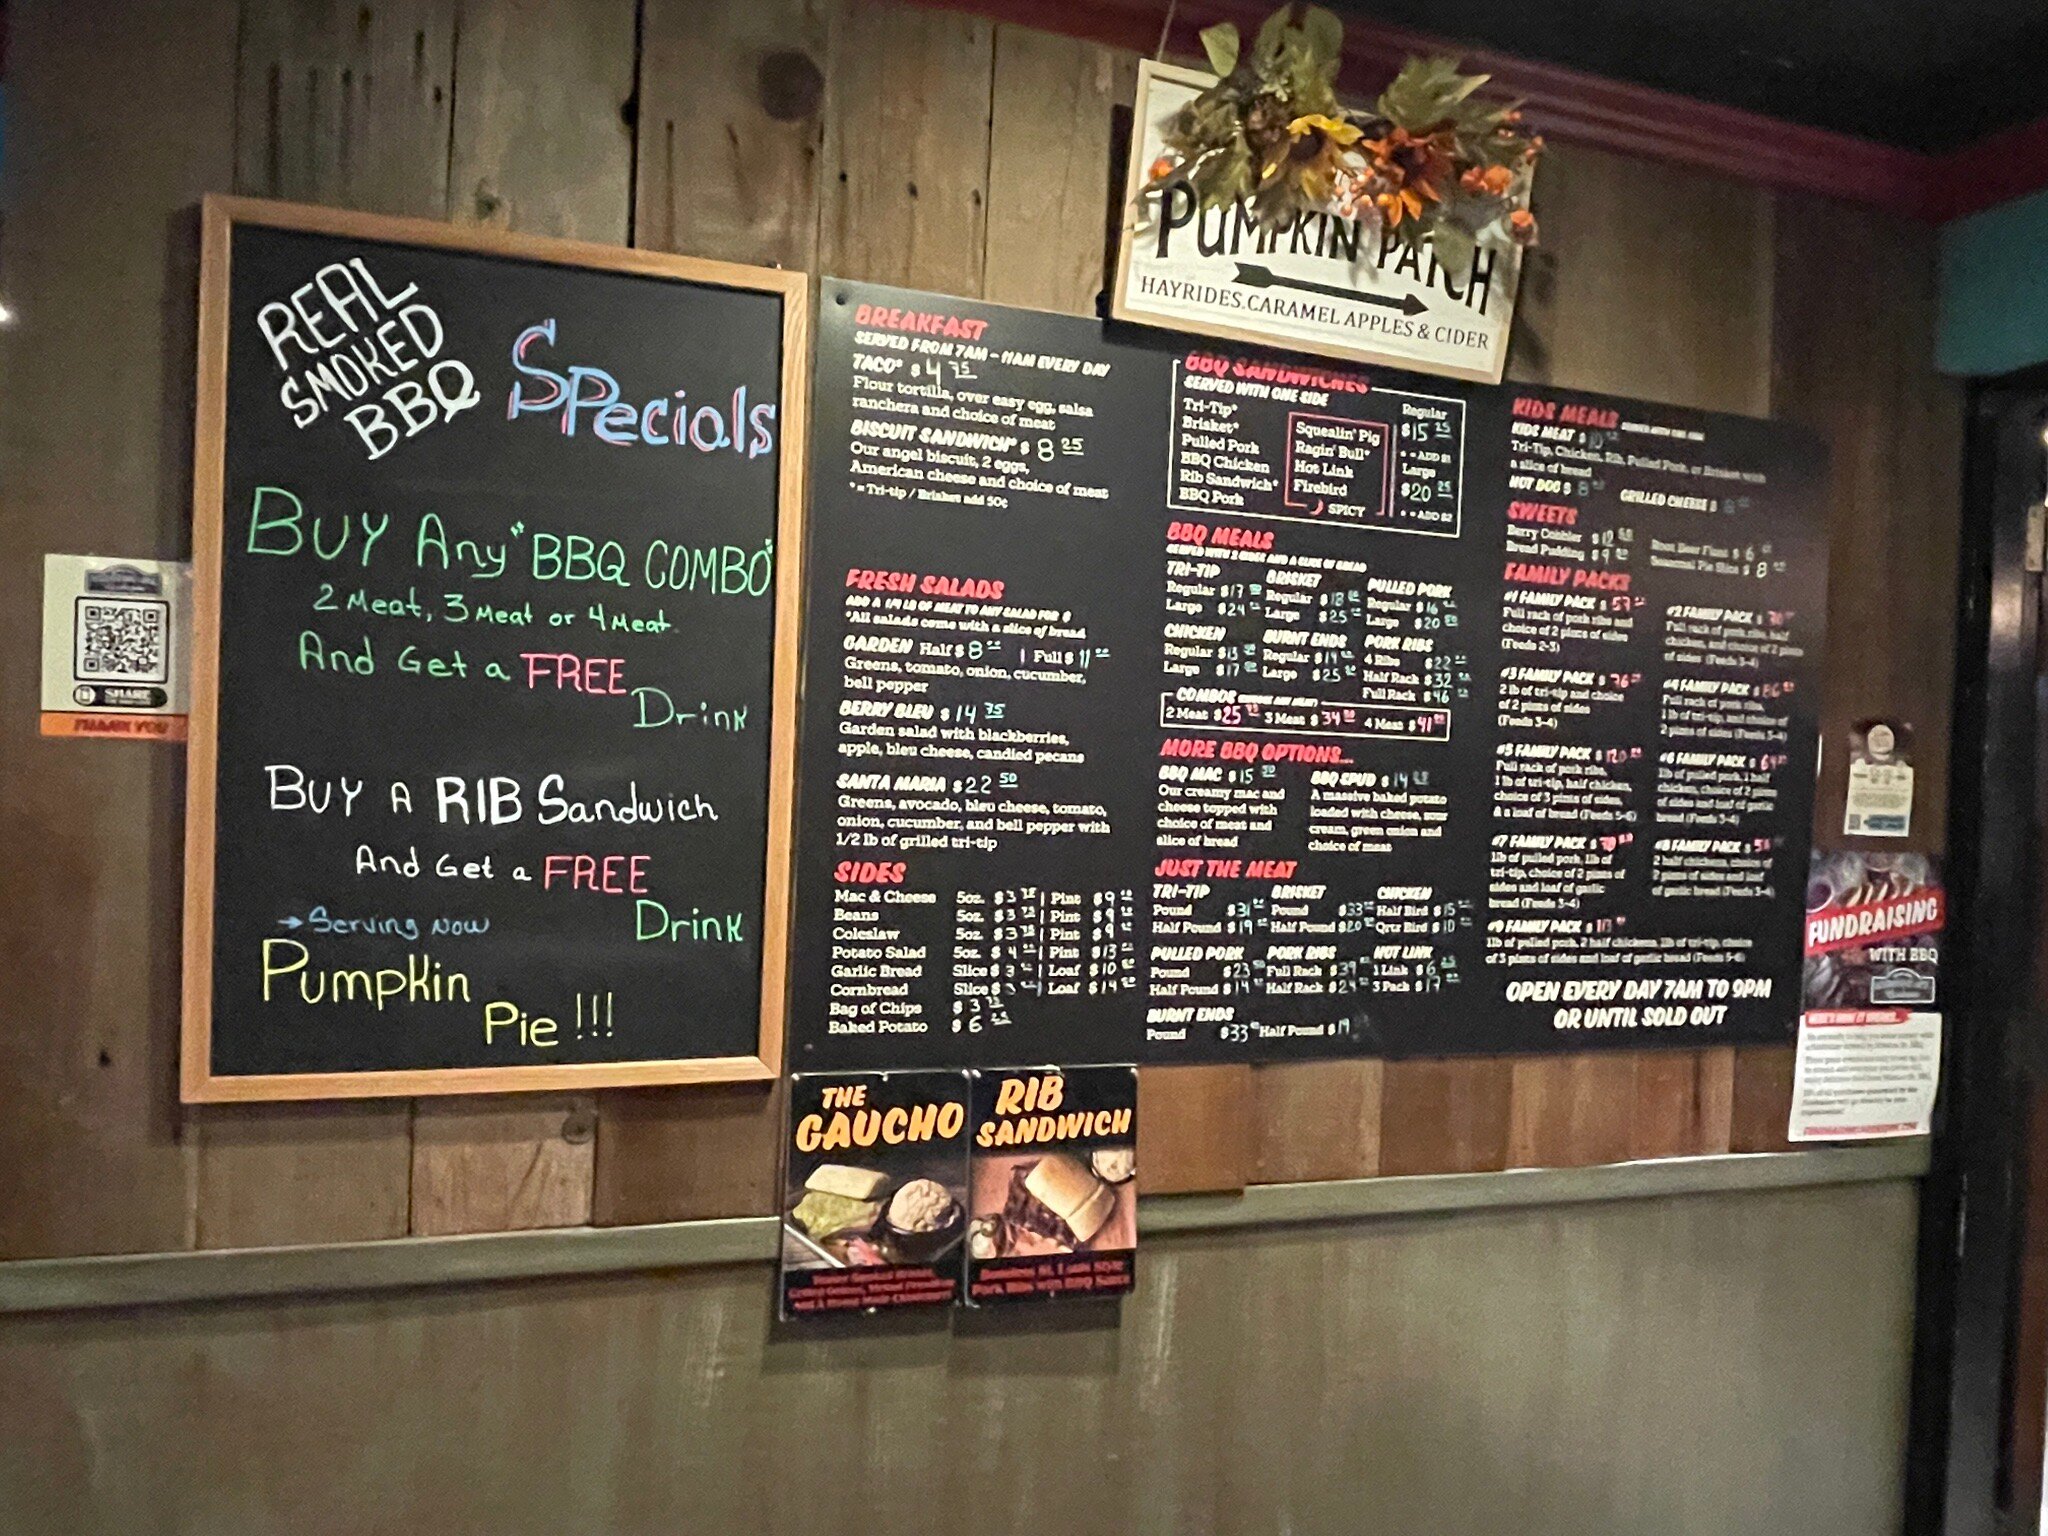 REAL
SMOKED
BBQ
Specials
BUY Any "BBQ COMBO"
2 Meat, 3 Meat or 4 Meat
And Get a FREE
Drink
BUY A RIB Sandwich
And Get a FREE
Drink
→ Serving Now
Pumpkin
Pie!!!
SHARE
THANK YOU
PUMPKIN PATCH
HAYRIDES.CARAMEL APPLES & CIDER
BREAKFAST
SERVED FROM 7AM - 11AM EVERY DAY
TACO* $4 75
Flour tortilla, over easy egg, salsa
ranchera and choice of meat
BISCUIT SANDWICH* $8 25
Our angel biscuit, 2 eggs,
American cheese and choice of meat
* = Tri-tip / Brisket add 50¢
FRESH SALADS
ADD A 1/4 LB OF MEAT TO ANY SALAD FOR $
*All salads come with a slice of bread
GARDEN Half $8 | Full $11
Greens, tomato, onion, cucumber,
bell pepper
BERRY BLEU $14 75
Garden salad with blackberries,
apple, bleu cheese, candied pecans
SANTA MARIA $22 50
Greens, avocado, bleu cheese, tomato,
onion, cucumber, and bell pepper with
1/2 lb of grilled tri-tip
SIDES
Mac & Cheese 5oz. $3 | Pint $9
Beans 5oz. $3 | Pint $9
Coleslaw 5oz. $3 | Pint $9
Potato Salad 5oz. $4 | Pint $13
Garlic Bread Slice $3 | Loaf $10
Cornbread Slice $3 | Loaf $14
Bag of Chips $3
Baked Potato $6
BBQ SANDWICHES
SERVED WITH ONE SIDE
Tri-Tip*
Brisket*
Pulled Pork
BBQ Chicken
Rib Sandwich*
BBQ Pork
Squealin' Pig
Ragin' Bull*
Hot Link
Firebird
SPICY
Regular
$15 25
* = ADD $1
Large
$20 25
* = ADD $2
BBQ MEALS
SERVED WITH 2 SIDES AND A SLICE OF BREAD
TRI-TIP
Regular $17
Large $24
BRISKET
Regular $18
Large $25
PULLED PORK
Regular $16
Large $20
CHICKEN
Regular $13
Large $17
BURNT ENDS
Regular $19
Large $25
PORK RIBS
4 Ribs $22
Half Rack $32
Full Rack $46
COMBOS
2 Meat $25 3 Meat $34 4 Meat $41
MORE BBQ OPTIONS...
BBQ MAC $15
Our creamy mac and
cheese topped with
choice of meat and
slice of bread
BBQ SPUD $14
A massive baked potato
loaded with cheese, sour
cream, green onion and
choice of meat
JUST THE MEAT
TRI-TIP
Pound $31
Half Pound $19
BRISKET
Pound $33
Half Pound $20
CHICKEN
Half Bird $15
Qrtr Bird $10
PULLED PORK
Pound $23
Half Pound $14
PORK RIBS
Full Rack $39
Half Rack $24
HOT LINK
1 Link $6
3 Pack $17
BURNT ENDS
Pound $33 Half Pound $19
KIDS MEALS
KIDS MEAT $10
Tri-Tip, Chicken, Rib, Pulled Pork, or Brisket with
a slice of bread
HOT DOG $8 GRILLED CHEESE $
SWEETS
Berry Cobbler $12
Bread Pudding $9
Root Beer Float $6
Seasonal Pie Slice $8
FAMILY PACKS
#1 FAMILY PACK $57
Full rack of pork ribs and
choice of 2 pints of sides
(Feeds 2-3)
#2 FAMILY PACK $70
Full rack of pork ribs, half
chicken, and choice of 2 pints
of sides (Feeds 3-4)
#3 FAMILY PACK $76
2 lb of tri-tip and choice
of 2 pints of sides
(Feeds 3-4)
#4 FAMILY PACK $86
Full rack of pork ribs,
1 lb of tri-tip, and choice of
2 pints of sides (Feeds 3-4)
#5 FAMILY PACK $120
Full rack of pork ribs,
1 lb of tri-tip, half chicken,
choice of 3 pints of sides,
& a loaf of bread (Feeds 5-6)
#6 FAMILY PACK $64
1lb of pulled pork, 1 half
chicken, choice of 2 pints
of sides and loaf of garlic
bread (Feeds 3-4)
#7 FAMILY PACK $
1lb of pulled pork, 1lb of
tri-tip, choice of 2 pints of
sides and loaf of garlic
bread (Feeds 3-4)
#8 FAMILY PACK $
2 half chickens, choice of
2 pints of sides and loaf
of garlic bread (Feeds 3-4)
#9 FAMILY PACK $
1lb of pulled pork, 2 half chickens, 1lb of tri-tip, choice
of 3 pints of sides and loaf of garlic bread (Feeds 5-6)
OPEN EVERY DAY 7AM TO 9PM
OR UNTIL SOLD OUT
THE
GAUCHO
RIB
SANDWICH
Pork Ribs with BBQ Sauce
FUNDRAISING
WITH BBQ